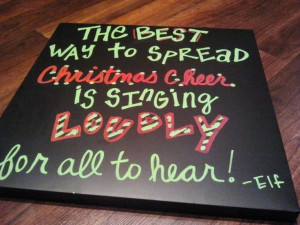 THE BEST
WAY to SPREAD
Christmas Cheer
is SINGING
LOUDLY
for all to hear!
-Elf